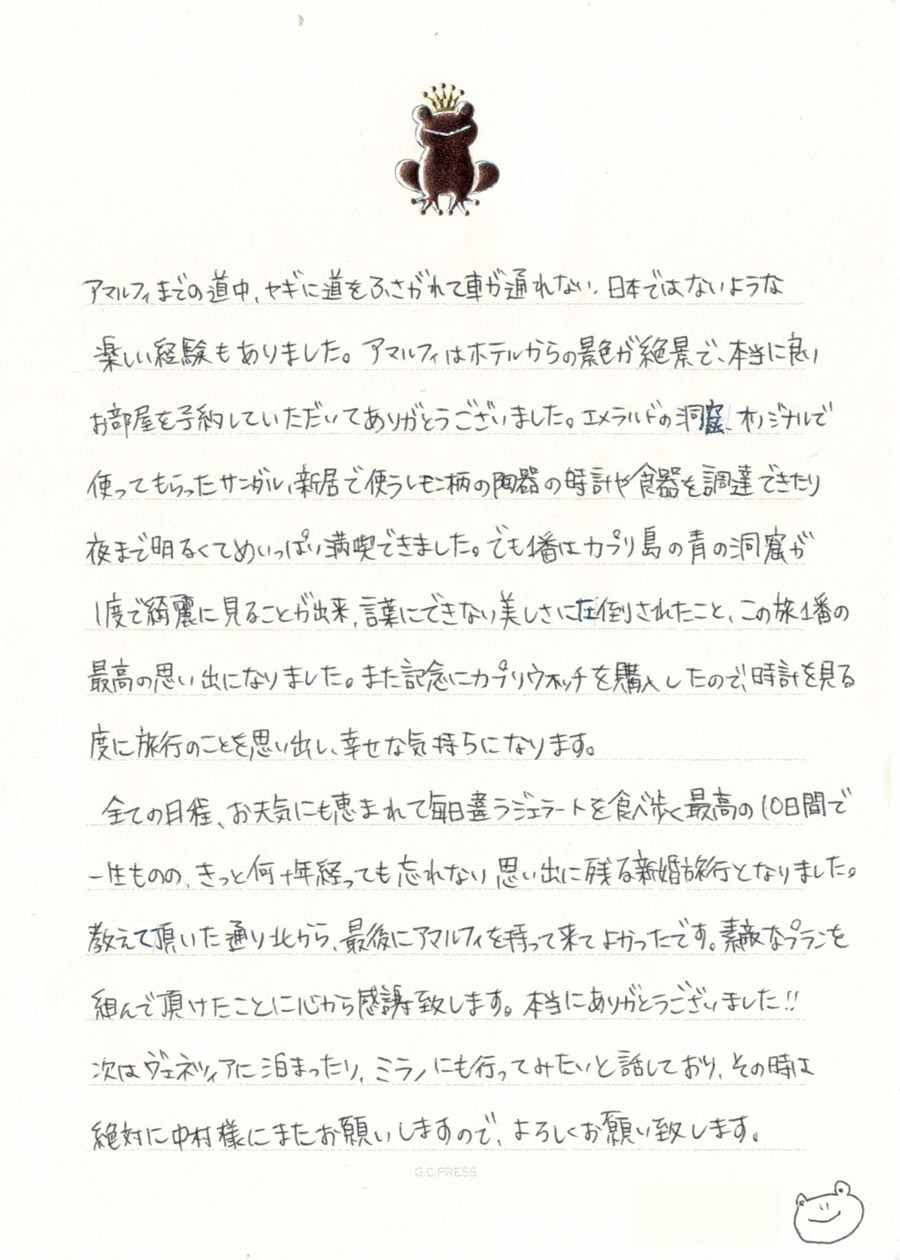 アマルフィまでの道中、ヤギに道をふさがれて車が通れない、日本ではないような
楽しい経験もありました。アマルフィはホテルからの景色が絶景で、本当に良い
お部屋を予約していただいてありがとうございました。エメラルドの洞窟、オリジナルで
使ってもらったサンダル、新居で使うレモン柄の陶器の時計や食器を調達できたり
夜まで明るくてめいっぱい満喫できました。でも1番はカプリ島の青の洞窟が
1度で綺麗に見ることが出来、言葉にできない美しさに圧倒されたこと、この旅1番の
最高の思い出になりました。また記念にカプリウォッチを購入したので、時計を見る
度に旅行のことを思い出し、幸せな気持ちになります。
全ての日程、お天気にも恵まれて毎日暑ジェラートを食べ歩く最高の10日間で
一生ものの、きっと何十年経っても忘れない思い出に残る新婚旅行となりました。
教えて頂いた通り北から、最後にアマルフィを持って来てよかったです。素敵なプランを
組んで頂けたことに心から感謝致します。本当にありがとうございました!!
次はヴェネツィアに泊まったり、ミラノにも行ってみたいと話しており、その時は
絶対に中村様にまたお願いしますので、よろしくお願い致します。
G.C.PRESS